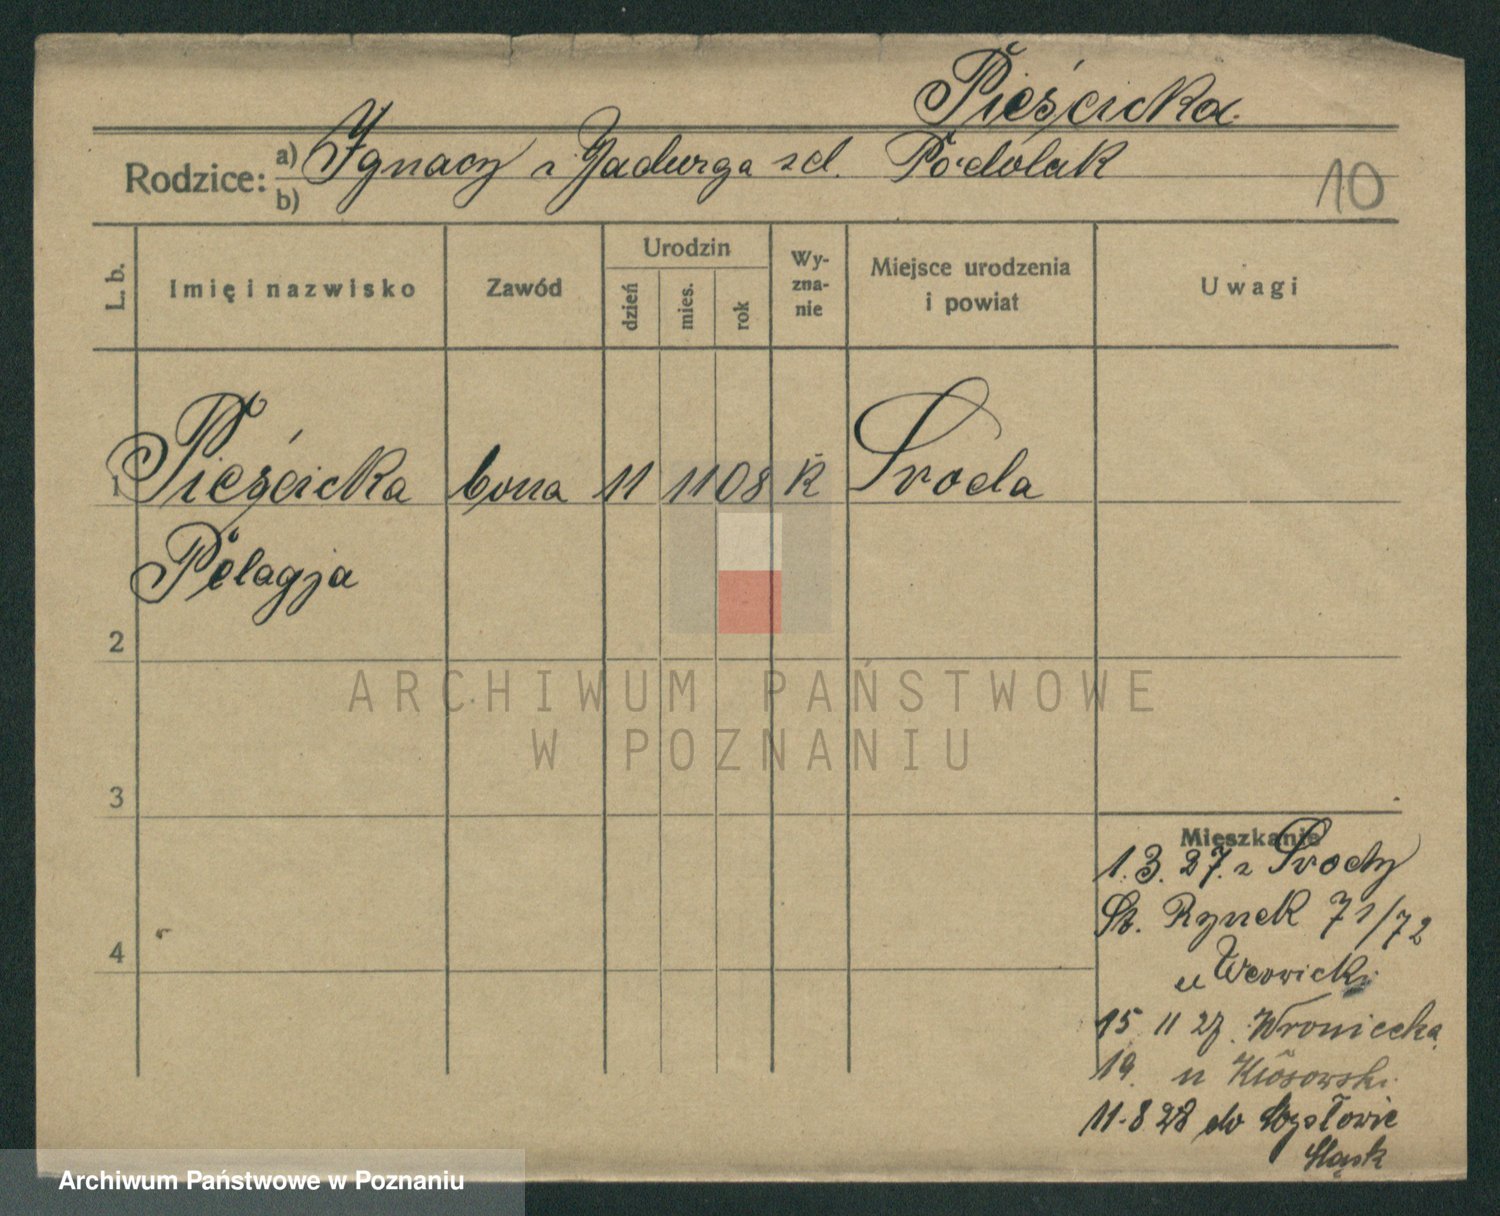 Pieścicka
Rodzice: a) Ignacy i Jadwiga zd. Podolak
b)
10
L. b. Imię i nazwisko Zawód Urodzin dzień mies. rok Wyznanie Miejsce urodzenia i powiat Uwagi
1 Pieścicka bona 11 11 08 R Środa
Pelagja
2
ARCHIWUM PAŃSTWOWE
W POZNANIU
3
Mieszkanie
1.3.27. z Środy
St. Rynek 71/72
4
u
15 11 27. Wroniecka
19. u Kłosowski
11.8.28 do Mysłowic
Śląsk
Archiwum Państwowe w Poznaniu